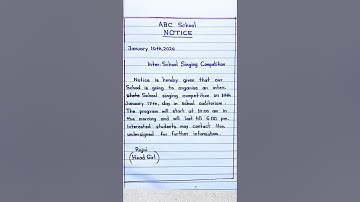 ABC School
NOTICE
January 10th, 2024
Inter-School Singing Competition
Notice is hereby given that our
School is going to organise an inter-
State School singing competition on
January 17th, day in school auditorium.
The program will start at 10:00 am in
the morning and will last till 5:00 pm.
Interested students may contact the
undersigned for further information.
Rajni
(Head Girl)